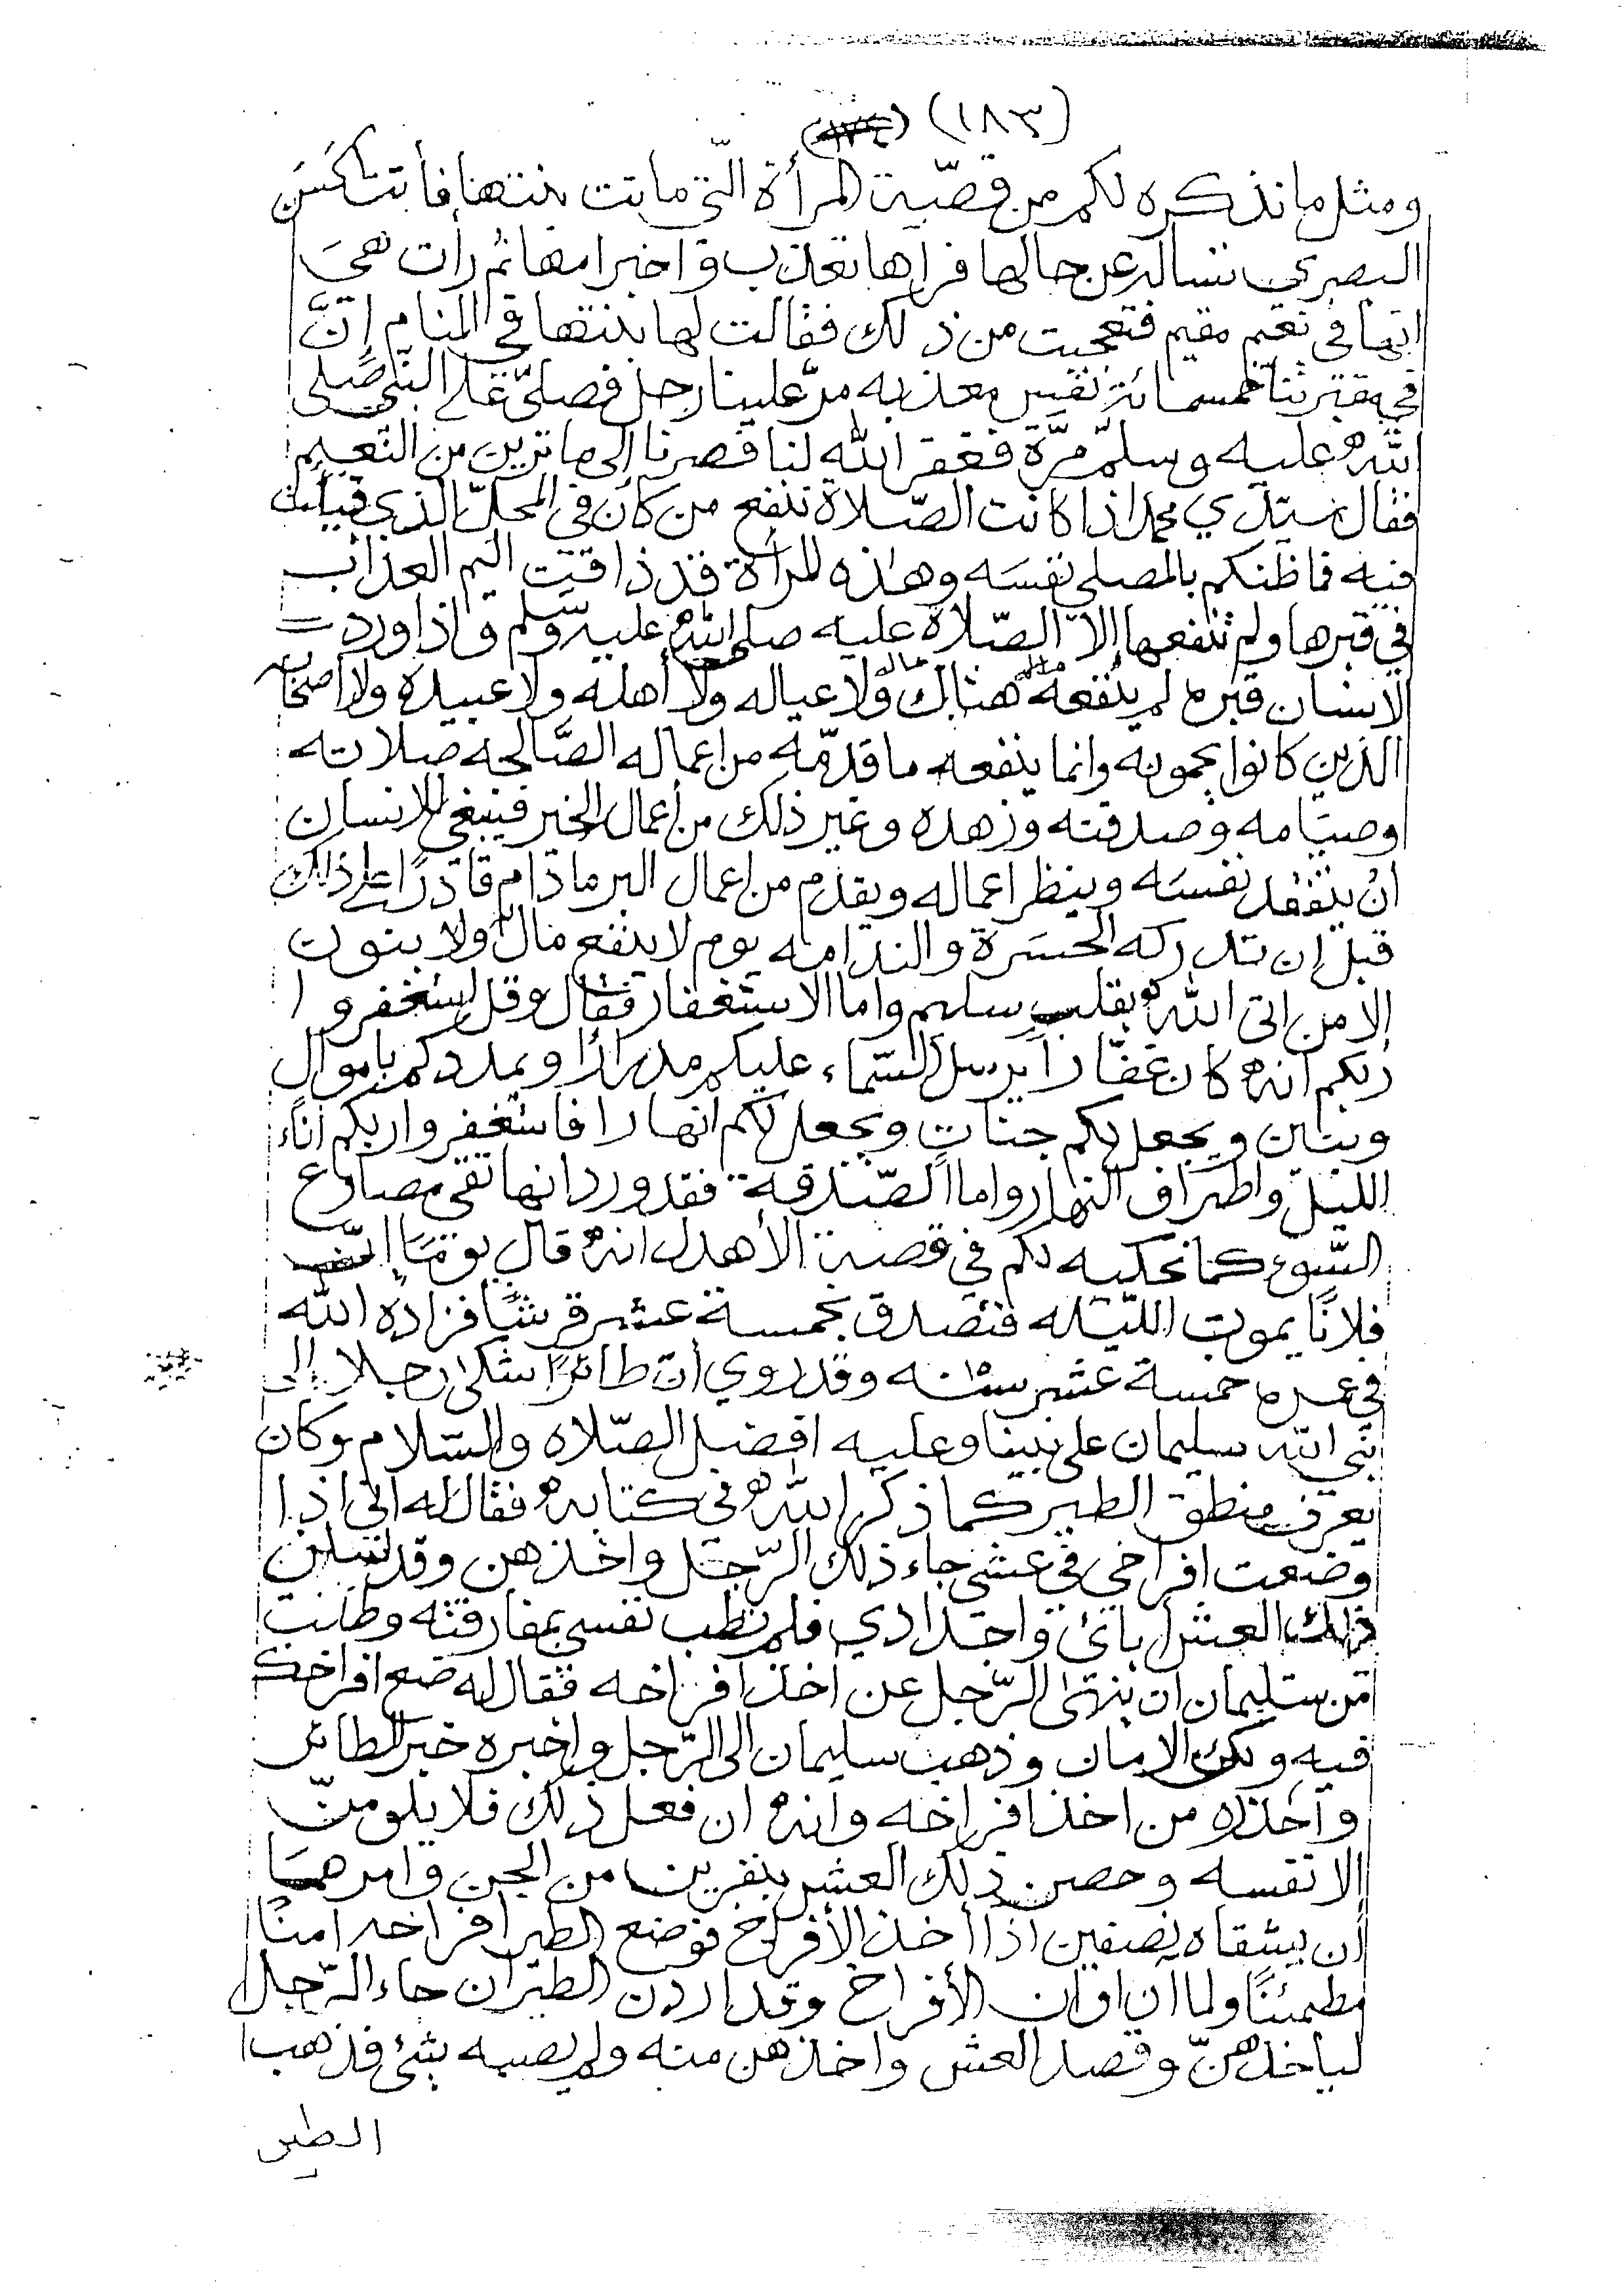 (١٨٣)
ومثل ما نذكره لكم من قصّية المرأة الّتي ماتت بنتها فأتت الحَسَن
البصري تسأله عن حالها فراها تعذب واخبر امها ثم رأت هي
انّها في نعيم مقيم فتعجبت من ذلك فقالت لها بنتها في المنام إنَّ
في مقبرتنا خمسمائة نفس معذبه مرّ علينا رجل فصلّى على النبّي صلى
الله عليه وسلّم مرّة فغفر الله لنا فصرنا الى ما ترين من النّعيم
فقال سيّدي محمد اذا كانت الصّلاة تنفع من كان في المحلّ الذي قيلت
فيه فما ظنكم بالمصلي نفسَه وهذه المرأة قد ذاقت اليم العذاب
في قبرها ولم تنفعها إلاّ الصّلاة عليه صلى الله عليه وسّلم واذا ورد
الانسان قبره لم ينفعه هنالك ماله ولا عياله ولا أهله ولا عبيده ولا اصحابه
الذين كانوا يحمونه وانما ينفعه ما قدمّه من اعماله الصَّالحه صلاته
وصيامه وصدقته وزهده وغير ذلك من أعمال الخير فينبغي للانسان
انْ يتفقد نفسَه وينظر اعماله ويقدم من اعمال البر مادام قادرًا على ذلك
قبل ان تدركه الحسَرة والندامه يوم لا ينفع مال ولا بنون
الا من اتى الله بقلب سليم واما الاستغفار فقال وقل استغفروا
ربكم انه كان غفّاراً يرسل السّماء عليكم مدرارًا ويمددكم باموال
وبنين ويجعل لكم جناتٍ ويجعل لكم انهارا فاستغفروا ربكم اناء
الليل واطراف النهار واما الصّدقة فقد ورد انها تقي مصارع
السّوء كما نحكيه لكم في قصة الأهدل انه قال يومًا إنّ
فلانًا يموت اللّيله فتصدق بخمسة عشر قرشًا فزاده الله
في عمره خمسة عشر ١٥ سنه وقد روي أن طائرًا شكى رجلا إلى
نبي الله سليمان على نبينا وعليه افضل الصّلاه والسّلام وكان
يعرف منطق الطير كما ذكر الله في كتابه فقال له اني اذا
وضعت افراخي في عشي جاء ذلك الرّجل واخذهن وقد سكن
ذلك العش أبائي واجدادي فلم تطب نفسي بمفارقته وطلبت
من سليمان ان ينهى الرّجل عن اخذ افراخه فقال له ضع افراخك
فيه ولك الامان وذهب سليمان الى الرّجل واخبره خبر الطائر
وحذره من اخذ افراخه وانه ان فعل ذلك فلا يلومنّ
الا نفسه وحصن ذلك العش بنفرين من الجن وامرهما
أن يشقاه نصفين اذا أخذ الأفراخ فوضع الطير افراخه امنًا
مطمئنًا ولما ان اوان الأفراخ وقد اردن الطيران جاء الرّجل
لياخذهنّ وقصد العش واخذهن منه ولم يصبه بشئ فذهب
الطير